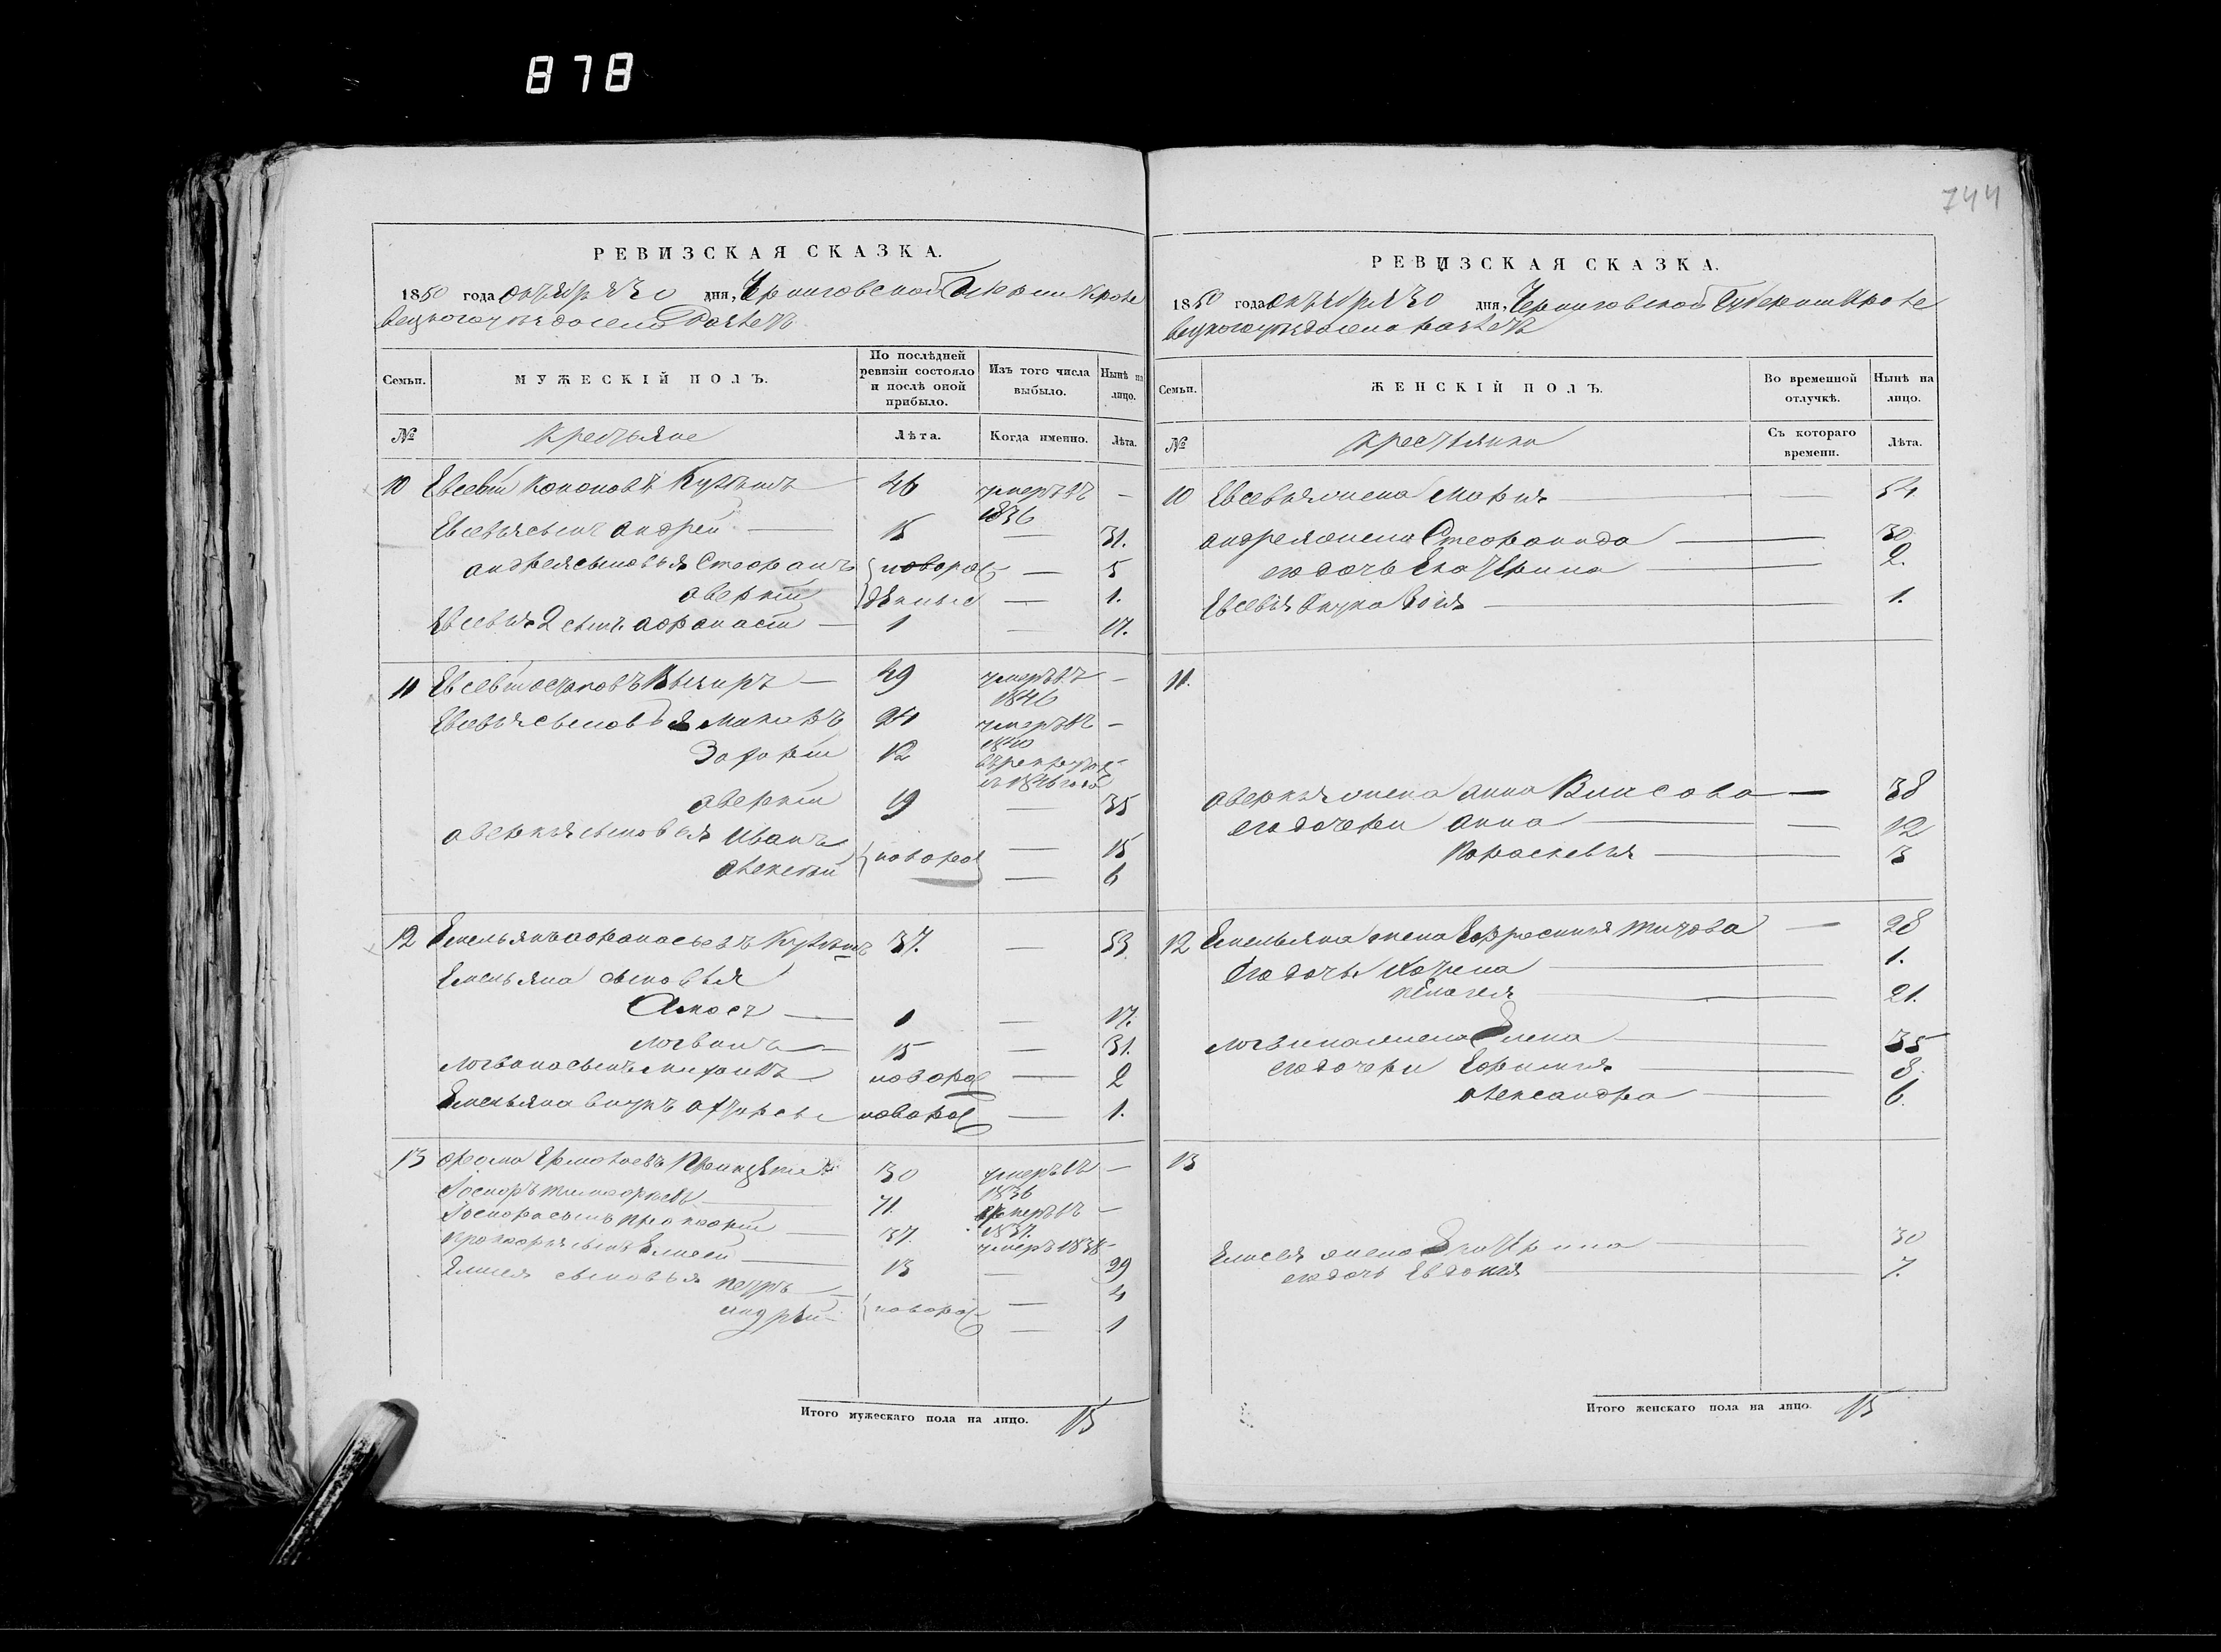 878
744
РЕВИЗСКАЯ СКАЗКА.
1850 года октября 30 дня, Черниговской Губернии Кроле
вецкаго уезда села
Семьи. МУЖЕСКІЙ ПОЛЪ. По послѣдней ревизіи состояло и послѣ оной прибыло. Изъ того числа выбыло. Нынѣ на лицо.
№ Крестьяне Лѣта. Когда именно. Лѣта.
10 Евсевій Кононовъ 46 умеръ въ 1836 —
Евсевія сынъ Андрей — 15 — 31.
Андрея сыновья Стефанъ новорож — 5
Аверкій дѣнные — 1.
Евсевія 2 сынъ Афанасій — 1 — 17.
11 Евсевій — 49 умеръ въ 1846 —
Евсевія сыновья Макаръ 24 умеръ въ 1840 —
Захарій 12 въ рекруты въ 1846 годе —
Аверкій 19 — 35
Аверкія сыновья Иванъ новорож — 15
Алексій — 6
12 Емельянъ Афанасьевъ 37. — 53.
Емельяна сыновья
Амосъ — 1 — 17.
Логвинъ — 15 — 31.
Логвина сынъ новорож — 2
Емельяна внукъ новорож — 1.
13 Фома Ермолаевъ 30 умеръ въ 1836 —
Тимофеевъ 71. умеръ въ 1837. —
сынъ Прокофій — 37. умеръ 1838 —
Прокофія сынъ Елисей — 13 — 29
Елисея сыновья Петръ — новорож — 4
Андрей — — 1
Итого мужескаго пола на лицо. 15
РЕВИЗСКАЯ СКАЗКА.
1850 года октября 30 дня, Черниговской Губернии Кроле
вецкаго уезда села
Семьи. ЖЕНСКІЙ ПОЛЪ. Во временной отлучкѣ. Нынѣ на лицо.
№ Крестьянки Съ котораго времени. Лѣта.
10 Евсевія жена Марія — — 54.
Андрея жена Степанида — 30.
его дочь Екатерина — 2.
Евсевія внука — 1.
11.
Аверкія жена Анна — 38
его дочери Анна — — 12
Параскевія — — 3
12 Емельяна жена Ефросинія — 28
его дочь — 1.
Пелагея — 21.
Логвина жена Елена — — 35
его дочери Ефимія — 8.
Александра — 6.
13
Елисея жена Екатерина — — 30
его дочь Евдокія — 7.
Итого женскаго пола на лицо. 13